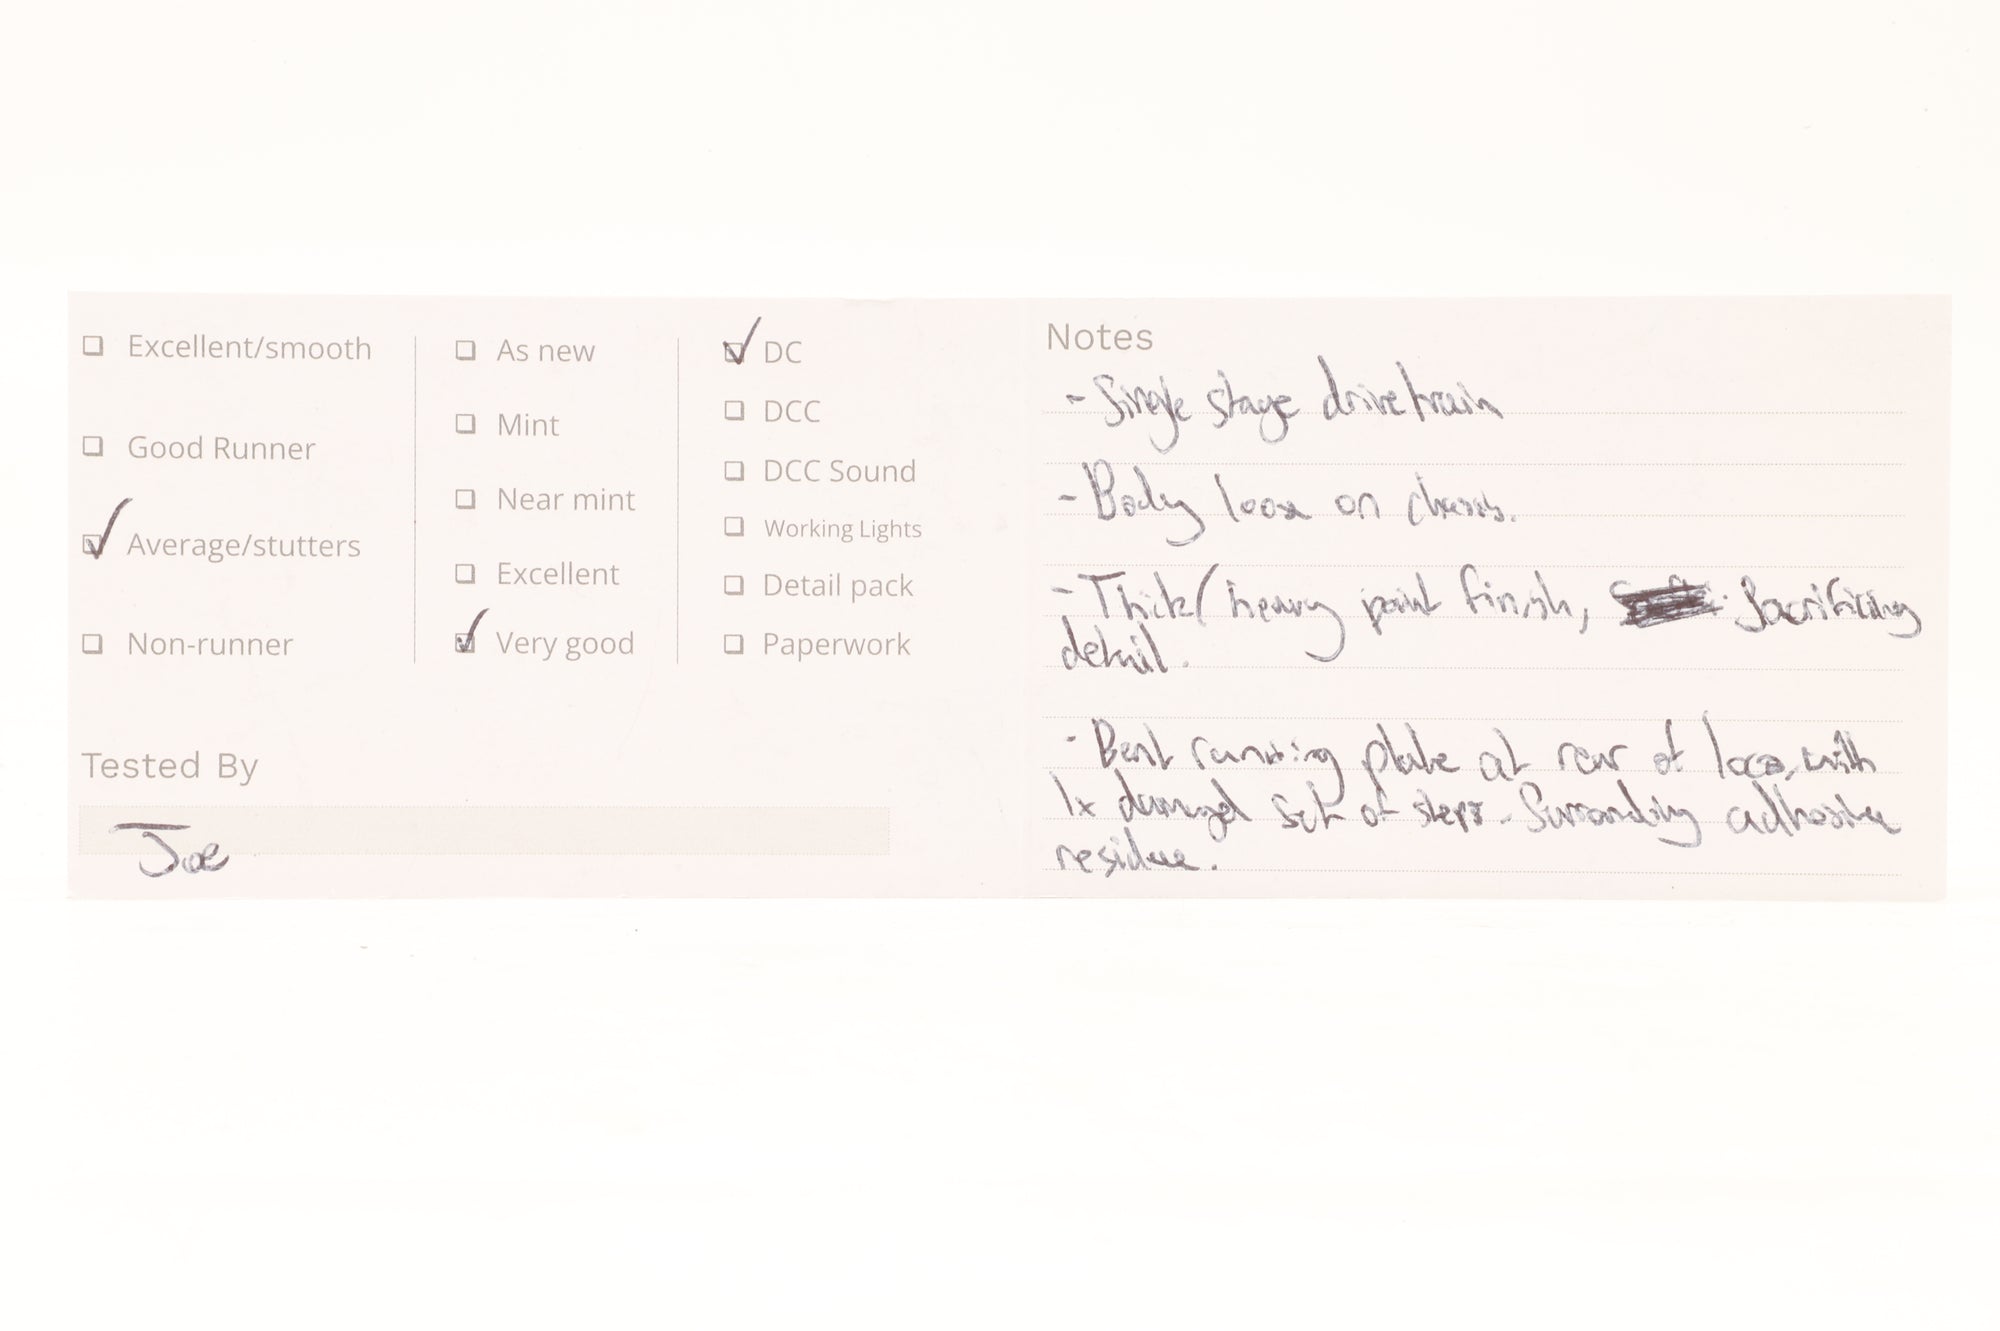 Excellent/smooth
Good Runner
Average/stutters
Non-runner
As new
Mint
Near mint
Excellent
Very good
DC
DCC
DCC Sound
Working Lights
Detail pack
Paperwork
Tested By
Joe
Notes
- Single stage drivetrain
- Body loose on chassis.
- Thick/heavy paint finish, Sacrificing
detail.
- Bent running plate at rear of loco, with
1x damaged set of steps - Surrounding adhesive
residue.